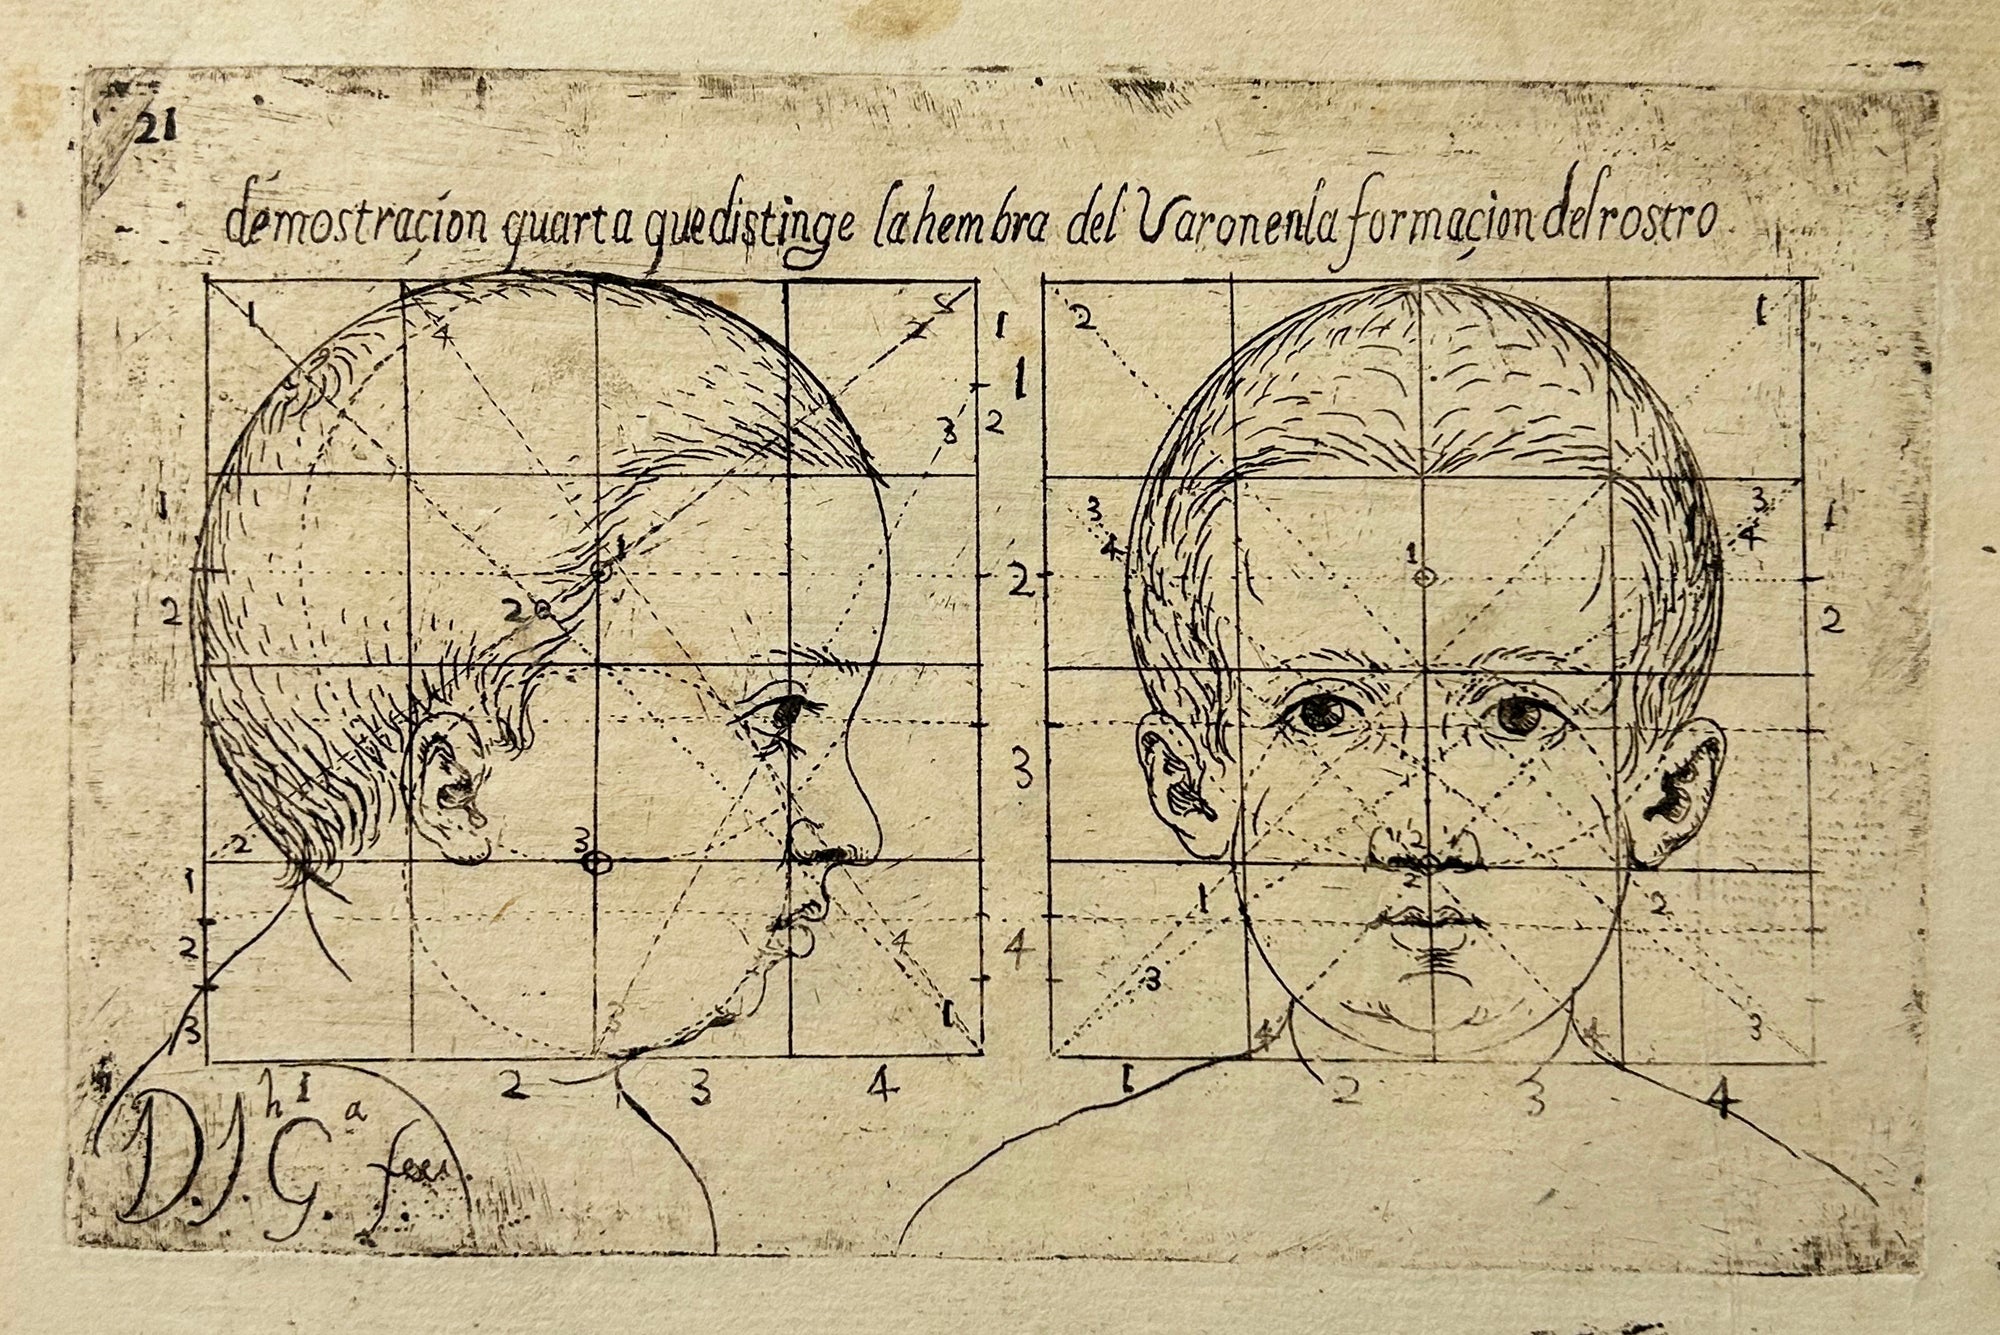 21
démostraçion quarta quedistinge lahembra del Varonenla formaçion delrostro
1 4 2 5 1
1
3 2
1
1
2 2 2
3
3
2
1 4 4
2
3 3 1
2 3 4
2 1
3 3
4 4
1 1
2
2
2
1 2
3 3
4 4
1 2 3 4
D. J. G.
h 1 a